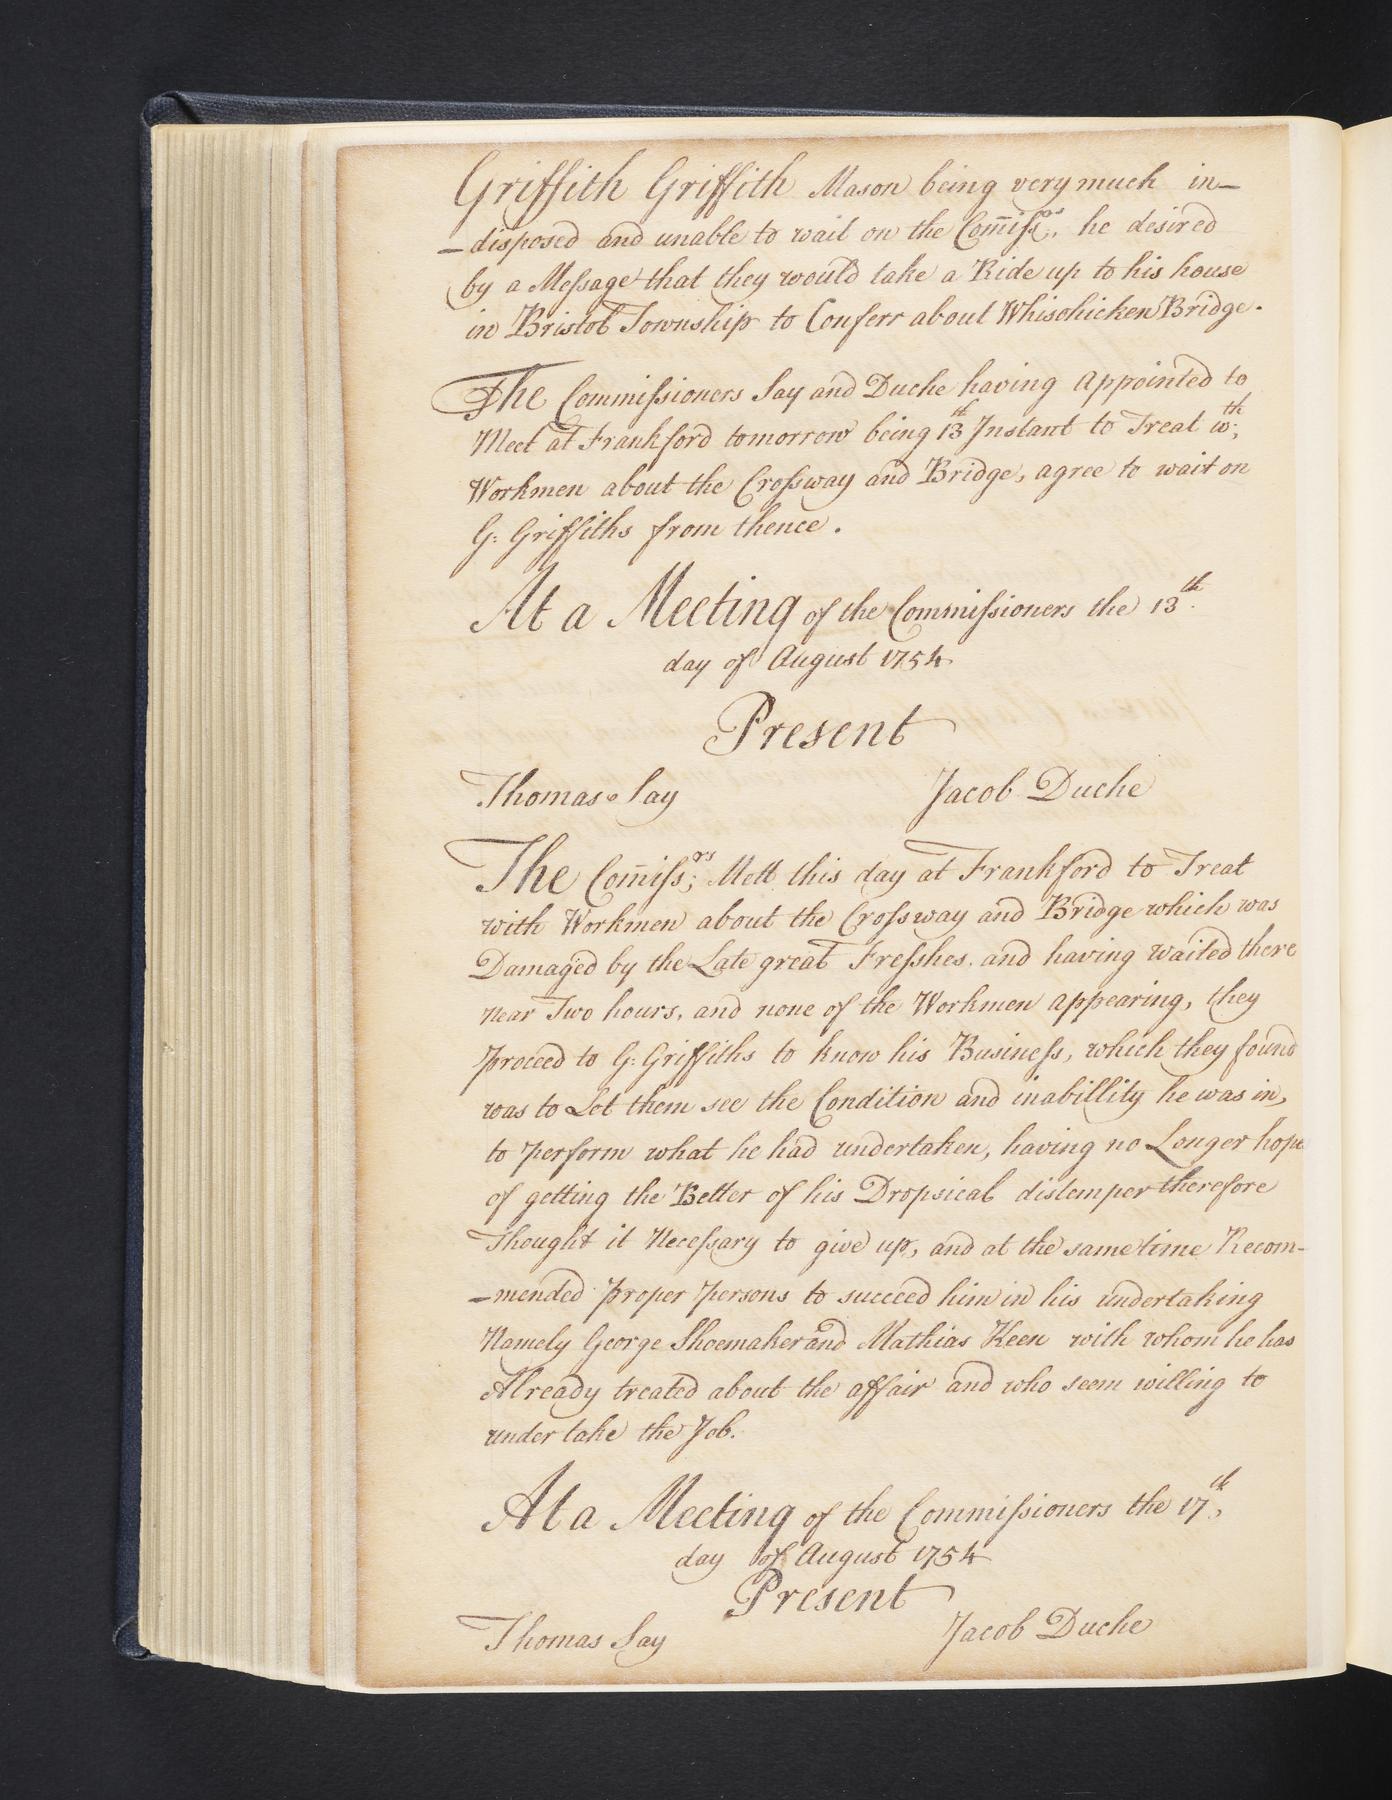 Griffith Griffith Mason being very much in-
-disposed and unable to wait on the Com̅iſsrs. he desired
by a Meſsage that they would take a Ride up to his house
in Bristol Township to Conferr about Whisohicken Bridge.
The Commiſsioners Say and Duche having appointed to
Meet at Frankford tomorrow being 13th Instant to Treat wth;
Workmen about the Croſsway and Bridge, agree to wait on
G: Griffiths from thence.
At a Meeting of the Commiſsioners the 13th.
day of August 1754
Present
Thomas Say Jacob Duche
The Com̅iſsrs; Mett this day at Frankford to Treat
with Workmen about the Croſsway and Bridge which was
Damaged by the Late great Freſshes. and having waited there
near Two hours, and none of the Workmen appearing, they
proceed to G: Griffiths to know his Buisineſs, which they found
was to Let them see the Condition and inabillity he was in,
to perform what he had undertaken, having no Longer hope
of getting the Better of his Dropsical distemper therefore
Thought it Neceſsary to give up, and at the same time Recom-
-mended proper persons to succeed him in his undertaking
Namely George Shoemaker and Mathias Keen with whom he has
Already treated about the affair and who seem willing to
under take the Job.
At a Meeting of the Commiſsioners the 17th,
day of August 1754
Present
Thomas Say Jacob Duche